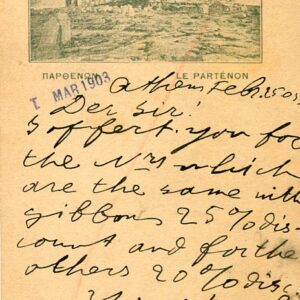 ΠΑΡΘΕΝΩΝ LE PARTENON
I MAR 1903
Athens Feb. 25 03
Der Sir!
I offert you for
the Nrs which
are the same with
gibbons 25% dis-
count and for the
others 20% disc